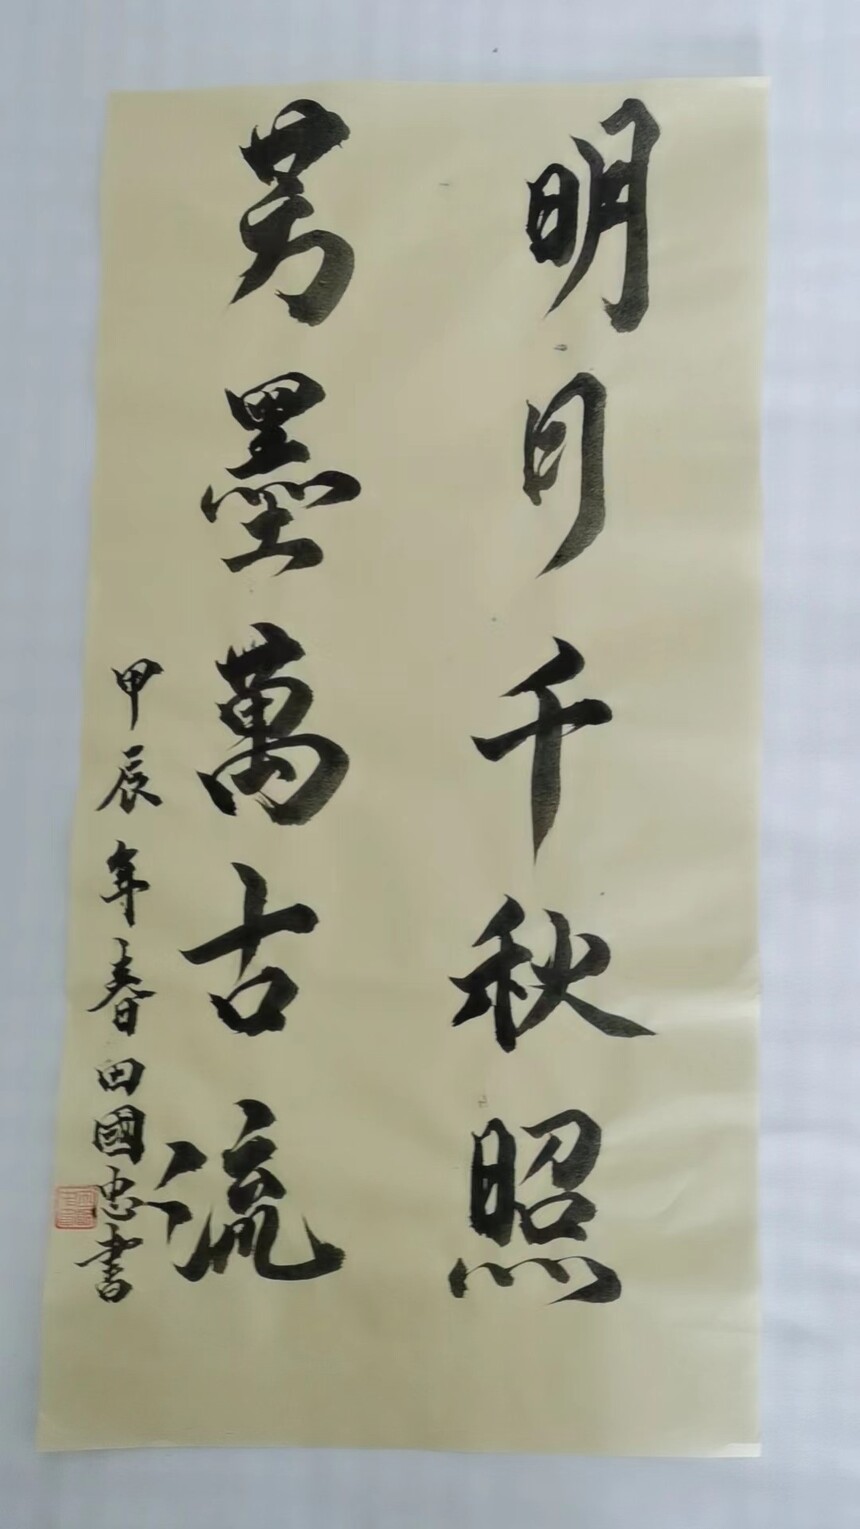 明月千秋照
芳墨萬古流
甲辰年春田國忠書